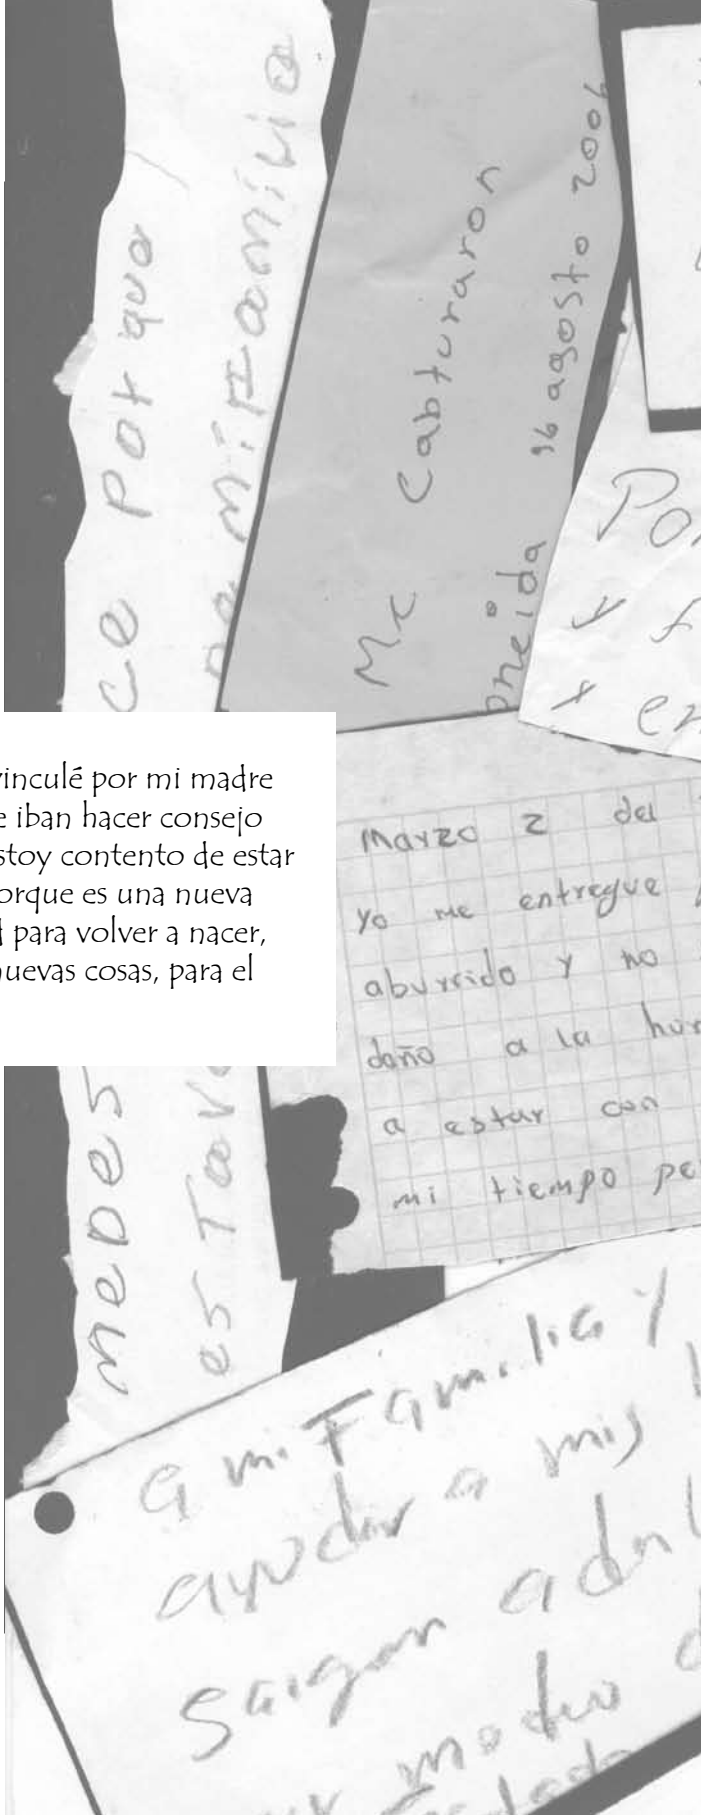 ce Por que
mi Familia
Me Cabturaron
oneida 16 agosto 2006
Por
y f
x en
vinculé por mi madre
e iban hacer consejo
stoy contento de estar
orque es una nueva
d para volver a nacer,
nuevas cosas, para el
Marzo 2 del
Yo me entregue
aburrido y no
daño a la
a estar con
mi tiempo
meDes
es Tava
a mi Familia y
ayudar a mis
Saigan adel
modo